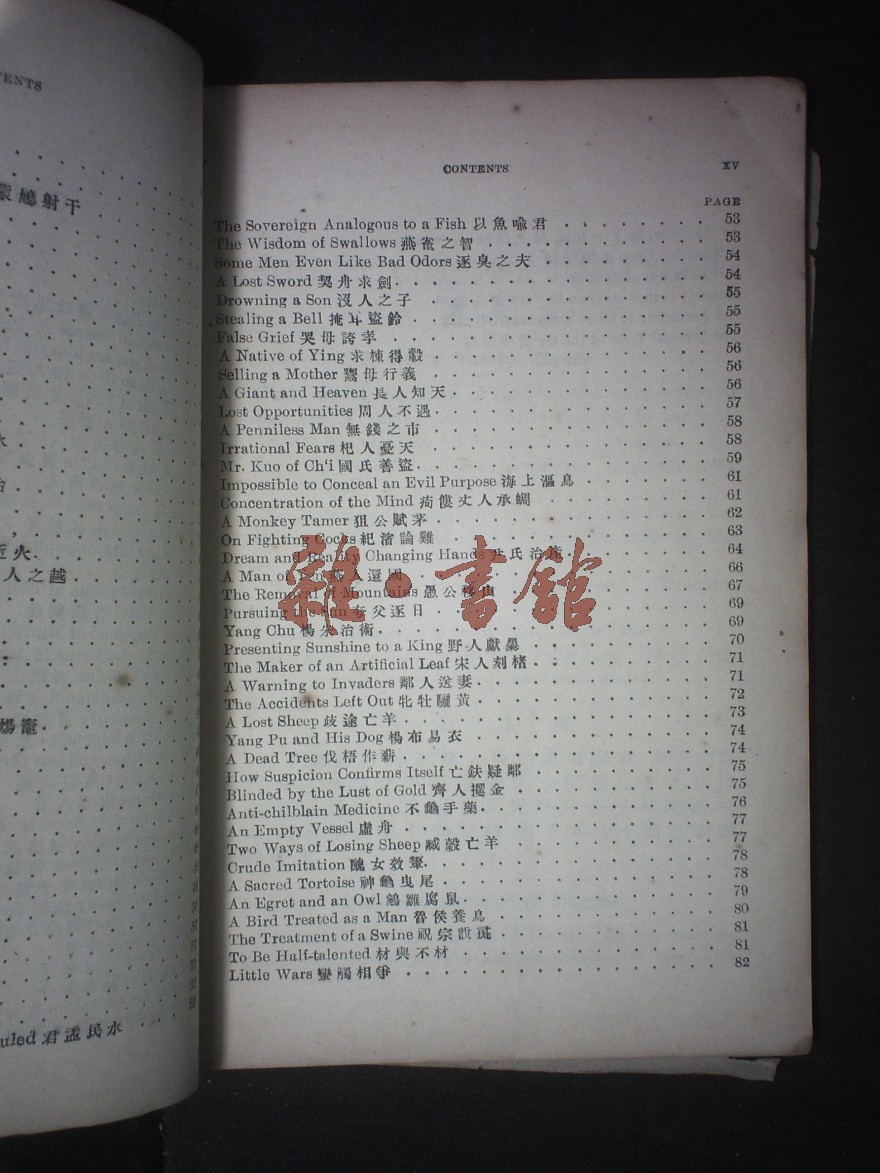 TENTS
蒙鳩射干
近火
人之越
煬竈
uled 君孟民水
CONTENTS XV
PAGE
The Sovereign Analogous to a Fish 以魚喩君 53
The Wisdom of Swallows 燕雀之智 53
Some Men Even Like Bad Odors 逐臭之夫 54
A Lost Sword 契舟求劍 54
Drowning a Son 沒人之子 55
Stealing a Bell 掩耳盜鈴 55
False Grief 哭母誇孝 55
A Native of Ying 求棟得轂 56
Selling a Mother 鬻母行義 56
A Giant and Heaven 長人知天 56
Lost Opportunities 周人不遇 57
A Penniless Man 無錢之市 58
Irrational Fears 杞人憂天 58
Mr. Kuo of Ch'i 國氏善盜 59
Impossible to Conceal an Evil Purpose 海上漚鳥 61
Concentration of the Mind 痀僂丈人承蜩 61
A Monkey Tamer 狙公賦茅 62
On Fighting Cocks 紀渻論雞 63
Dream and Reality Changing Hands 尹氏治產 64
A Man of Yen 燕人還國 66
The Removal of Mountains 愚公移山 67
Pursuing the Sun 夸父逐日 69
Yang Chu 楊朱治術 69
Presenting Sunshine to a King 野人獻曝 70
The Maker of an Artificial Leaf 宋人刻楮 71
A Warning to Invaders 鄰人送妻 71
The Accidents Left Out 牝牡驪黃 72
A Lost Sheep 歧途亡羊 73
Yang Pu and His Dog 楊布易衣 74
A Dead Tree 伐梧作薪 74
How Suspicion Confirms Itself 亡鈇疑鄰 75
Blinded by the Lust of Gold 齊人攫金 75
Anti-chilblain Medicine 不龜手藥 76
An Empty Vessel 虛舟 77
Two Ways of Losing Sheep 臧穀亡羊 77
Crude Imitation 醜女效顰 78
A Sacred Tortoise 神龜曳尾 78
An Egret and an Owl 鵷雛腐鼠 79
A Bird Treated as a Man 魯侯養鳥 80
The Treatment of a Swine 祝宗說彘 81
To Be Half-talented 材與不材 81
Little Wars 蠻觸相爭 82
雜·書館